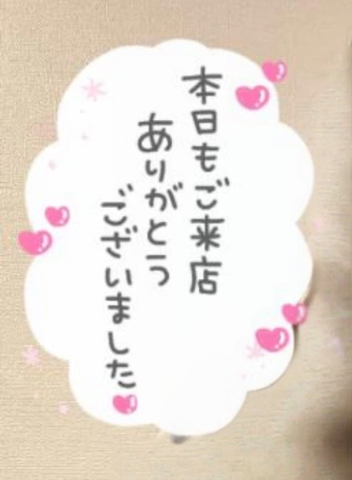 本日もご来店
ありがとう
ございました